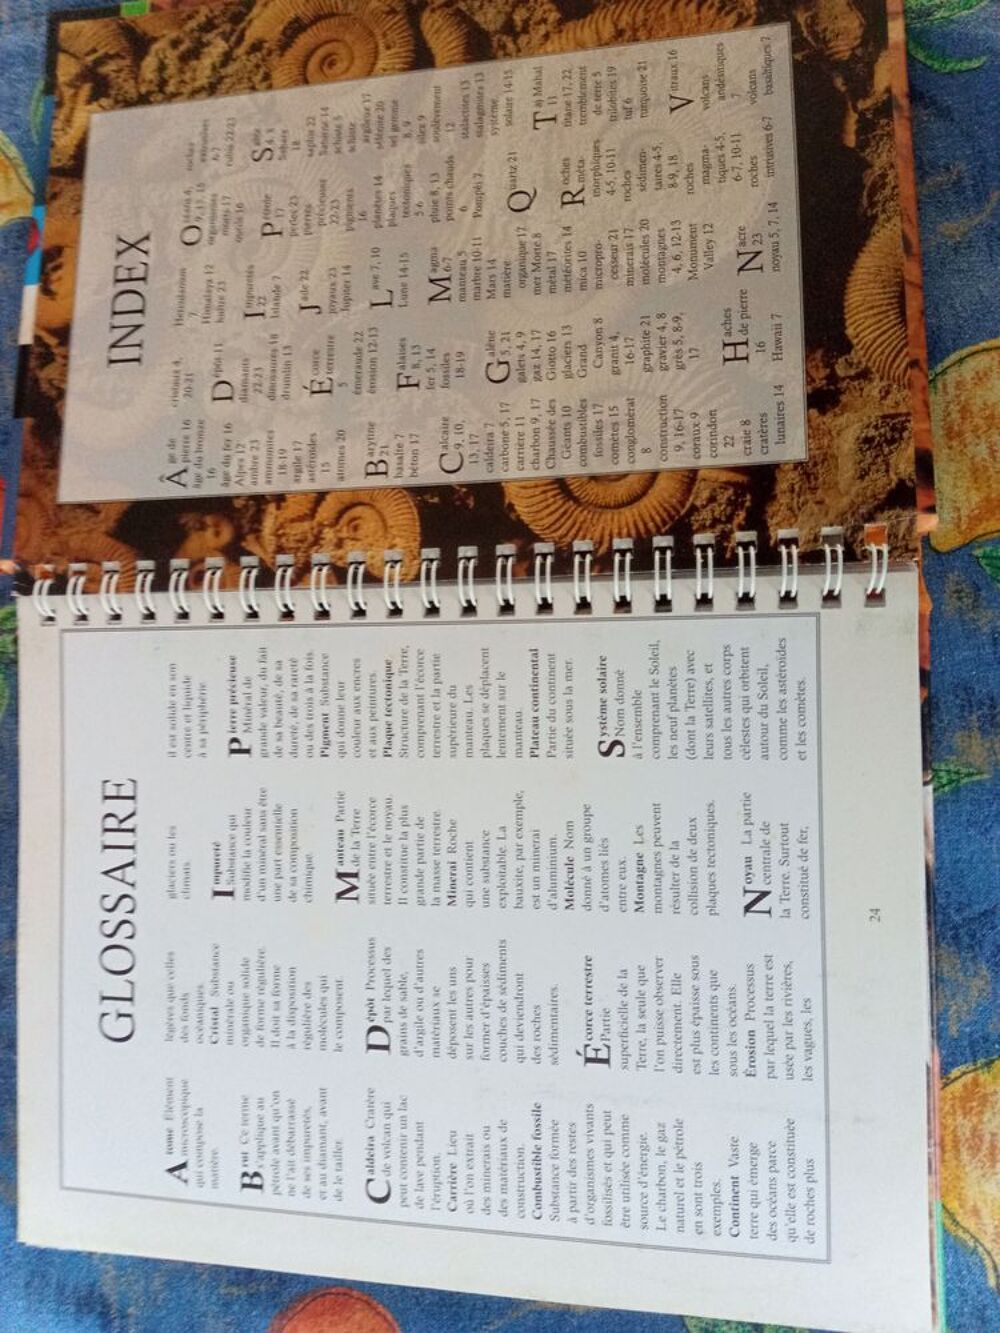 GLOSSAIRE
Atome Élément
microscopique
qui compose la
matière.
Brut Ce terme
s'applique au
pétrole avant qu'on
ne l'ait débarrassé
de ses impuretés,
et au diamant, avant
de le tailler.
Caldeira Cratère
de volcan qui
peut contenir un lac
de lave pendant
l'éruption.
Carrière Lieu
où l'on extrait
des minerais ou
des matériaux de
construction.
Combustible fossile
Substance formée
à partir des restes
d'organismes vivants
fossilisés et qui peut
être utilisée comme
source d'énergie.
Le charbon, le gaz
naturel et le pétrole
en sont trois
exemples.
Continent Vaste
terre qui émerge
des océans parce
qu'elle est constituée
de roches plus
légères que celles
des fonds
océaniques.
Cristal Substance
minérale ou
organique solide
de forme régulière.
Il doit sa forme
à la disposition
régulière des
molécules qui
le composent.
Dépôt Processus
par lequel des
grains de sable,
d'argile ou d'autres
matériaux se
déposent les uns
sur les autres pour
former d'épaisses
couches de sédiments
qui deviendront
des roches
sédimentaires.
Écorce terrestre
Partie
superficielle de la
Terre, la seule que
l'on puisse observer
directement. Elle
est plus épaisse sous
les continents que
sous les océans.
Érosion Processus
par lequel la terre est
usée par les rivières,
les vagues, les
glaciers ou les
climats.
Impureté
Substance qui
modifie la couleur
d'un minéral sans être
une part essentielle
de sa composition
chimique.
Manteau Partie
de la Terre
située entre l'écorce
terrestre et le noyau.
Il constitue la plus
grande partie de
la masse terrestre.
Minerai Roche
qui contient
une substance
exploitable. La
bauxite, par exemple,
est un minerai
d'aluminium.
Molécule Nom
donné à un groupe
d'atomes liés
entre eux.
Montagne Les
montagnes peuvent
résulter de la
collision de deux
plaques tectoniques.
Noyau La partie
centrale de
la Terre. Surtout
constitué de fer,
il est solide en son
centre et liquide
à sa périphérie.
Pierre précieuse
Minéral de
grande valeur, du fait
de sa beauté, de sa
dureté, de sa rareté
ou des trois à la fois.
Pigment Substance
qui donne leur
couleur aux encres
et aux peintures.
Plaque tectonique
Structure de la Terre,
comprenant l'écorce
terrestre et la partie
supérieure du
manteau. Les
plaques se déplacent
lentement sur le
manteau.
Plateau continental
Partie du continent
située sous la mer.
Système solaire
Nom donné
à l'ensemble
comprenant le Soleil,
les neuf planètes
(dont la Terre) avec
leurs satellites, et
tous les autres corps
célestes qui orbitent
autour du Soleil,
comme les astéroïdes
et les comètes.
24
INDEX
Âge de
pierre 16
âge du bronze
16
âge du fer 16
Alpes 12
ambre 23
ammonites
18-19
argile 17
astéroïdes
15
atomes 20
Barytine
21
basalte 7
béton 17
Calcaire
9, 10,
13, 17
caldeira 7
carbone 5, 17
carrière 11
charbon 9, 17
Chaussée des
Géants 10
combustibles
fossiles 17
comètes 15
conglomérat
8
construction
9, 16-17
coraux 9
corindon
22
craie 8
cratères
lunaires 14
cristaux 4,
20-21
Dépôt 11
diamants
22-23
dinosaures 18
drumlin 13
Écorce
terrestre
5
émeraude 22
érosion 12-13
Falaises
8, 13
fer 5, 14
fossiles
18-19
Galène
5, 21
galets 4, 9
gaz 14, 17
Giotto 16
glaciers 13
Grand
Canyon 8
granit 4,
16-17
graphite 21
gravier 4, 8
grès 5, 8-9,
17
Haches
de pierre
16
Hawaii 7
7
Himalaya 12
huître 23
Impuretés
22
Islande 7
Jade 22
joyaux 23
Jupiter 14
Lave 7, 10
Lune 14-15
Magma
6-7
manteau 5
marbre 10-11
Mars 14
matière
organique 17
mer Morte 8
métal 17
météorites 14
mica 10
micropro-
cesseur 21
minerais 17
molécules 20
montagnes
4, 6, 12-13
Monument
Valley 12
Nacre
23
noyau 5, 7, 14
organismes
morts 17
Pétrole
17
perles 23
pierres
précieuses
22-23
pigments
16
planètes 14
plaques
tectoniques
5-6
pluie 8, 13
points chauds
6
Pompéi 7
Quartz 21
Roches
méta-
morphiques
4-5, 10-11
roches
sédimen-
taires 4-5,
8-9, 18
roches
magma-
tiques 4-5,
6-7, 10-11
roches
intrusives 6-7
roches
extrusives
6-7
rubis 22-23
Sable
4, 8
18
saphir 22
Saturne 14
schiste 5
schiste
argileux 17
sélénite 20
sel gemme
8, 9
silex 9
soulèvement
12
stalactites 13
stalagmites 13
système
solaire 14-15
Taj Mahal
11
titane 17, 22
tremblement
de terre 5
trilobites 19
tuf 6
turquoise 21
Vitraux 16
volcans
andésitiques
7
volcans
basaltiques 7